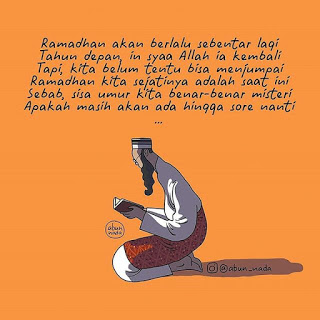 Ramadhan akan berlalu sebentar lagi
Tahun depan, in syaa Allah ia kembali
Tapi, kita belum tentu bisa menjumpai
Ramadhan kita sejatinya adalah saat ini
Sebab, sisa umur kita benar-benar misteri
Apakah masih akan ada hingga sore nanti
...
abun
nada
@abun_nada